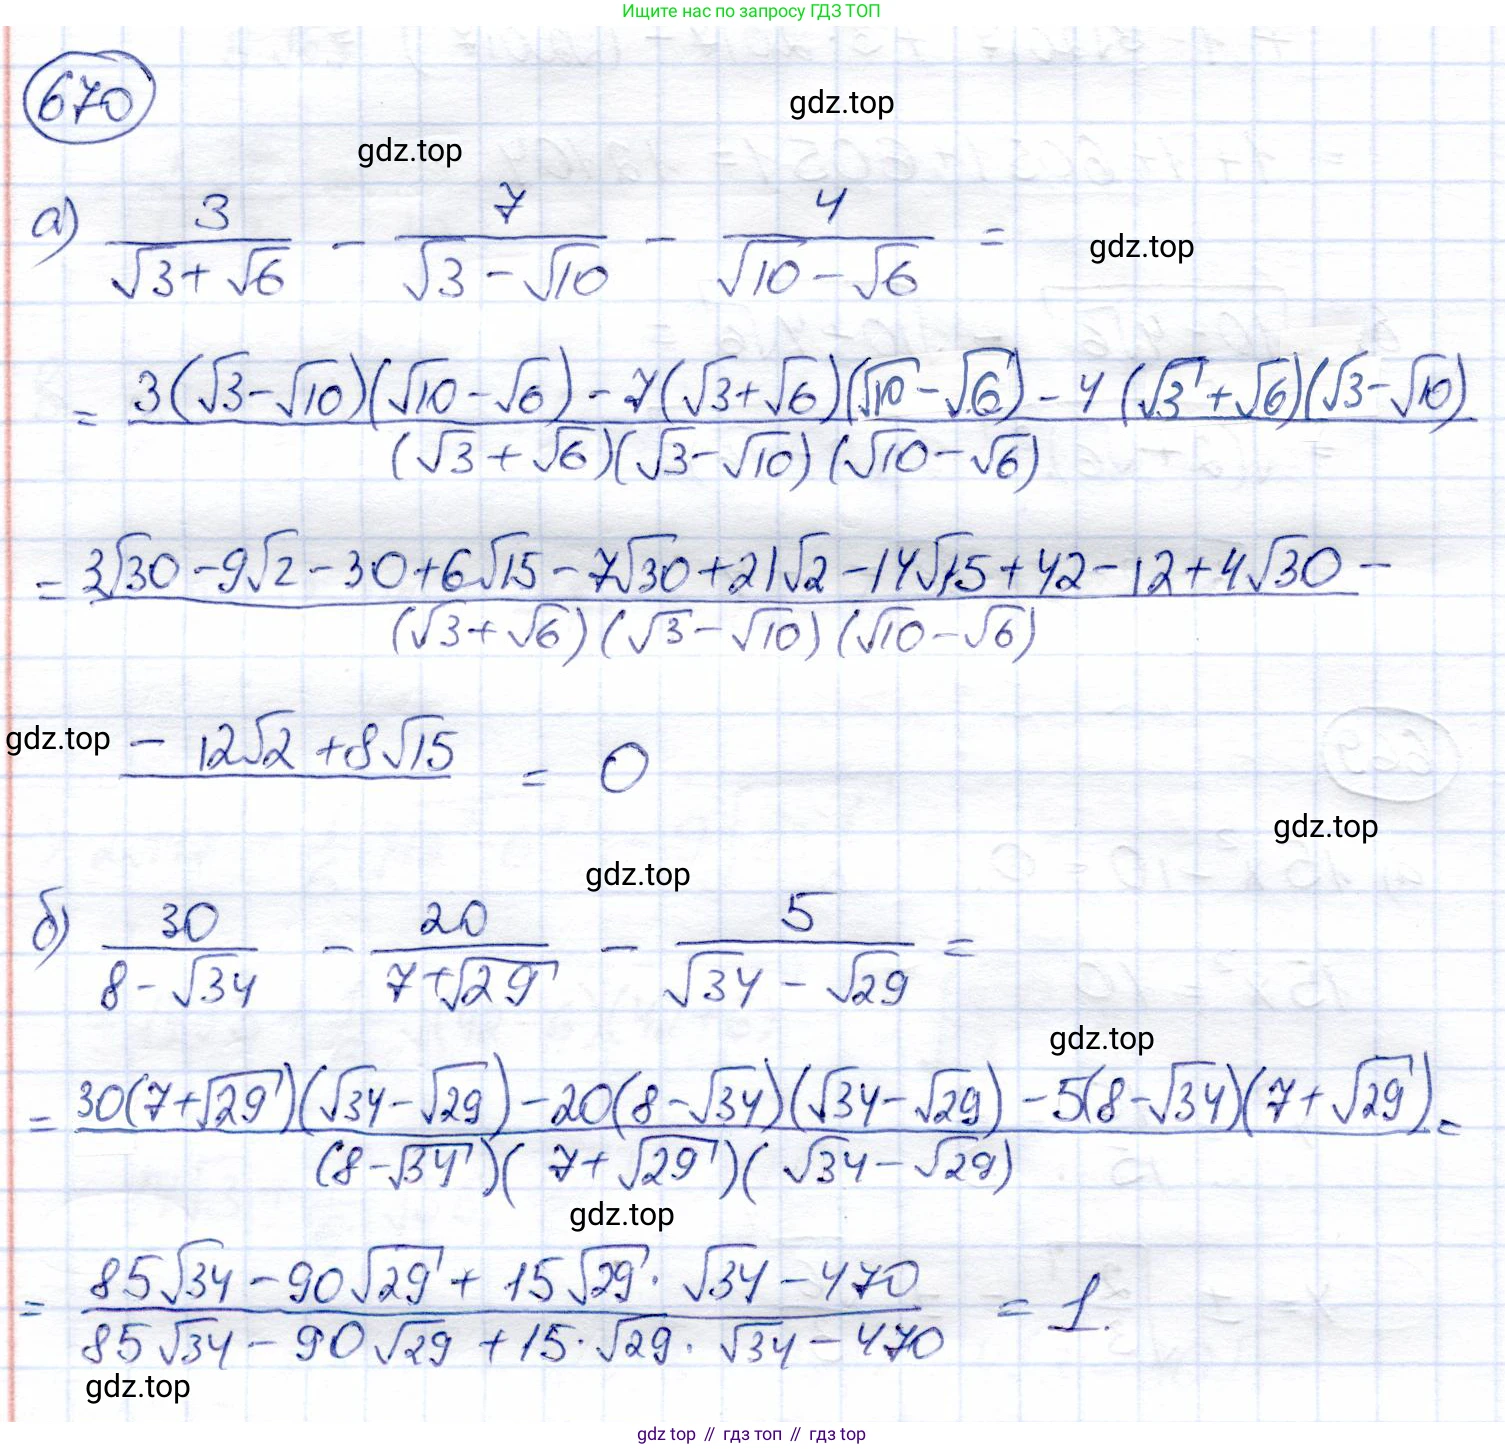 Ищите нас по запросу ГДЗ ТОП
670
gdz.top
gdz.top
а) 3/(√3+√6) − 7/(√3−√10) − 4/(√10−√6) =
gdz.top
= (3(√3−√10)(√10−√6) − 7(√3+√6)(√10−√6) − 4(√3+√6)(√3−√10))/((√3+√6)(√3−√10)(√10−√6))
= (3√30−9√2−30+6√15−7√30+21√2−14√15+42−12+4√30−)/((√3+√6)(√3−√10)(√10−√6))
gdz.top
−12√2+8√15 = 0
gdz.top
gdz.top
б) 30/(8−√34) − 20/(7+√29) − 5/(√34−√29) =
gdz.top
= (30(7+√29)(√34−√29)−20(8−√34)(√34−√29)−5(8−√34)(7+√29))/((8−√34)(7+√29)(√34−√29)) =
gdz.top
= (85√34−90√29+15√29·√34−470)/(85√34−90√29+15·√29·√34−470) = 1.
gdz.top
gdz top // гдз топ // гдз top